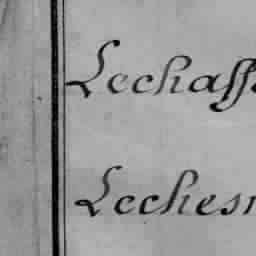 Lechass
Lechesn